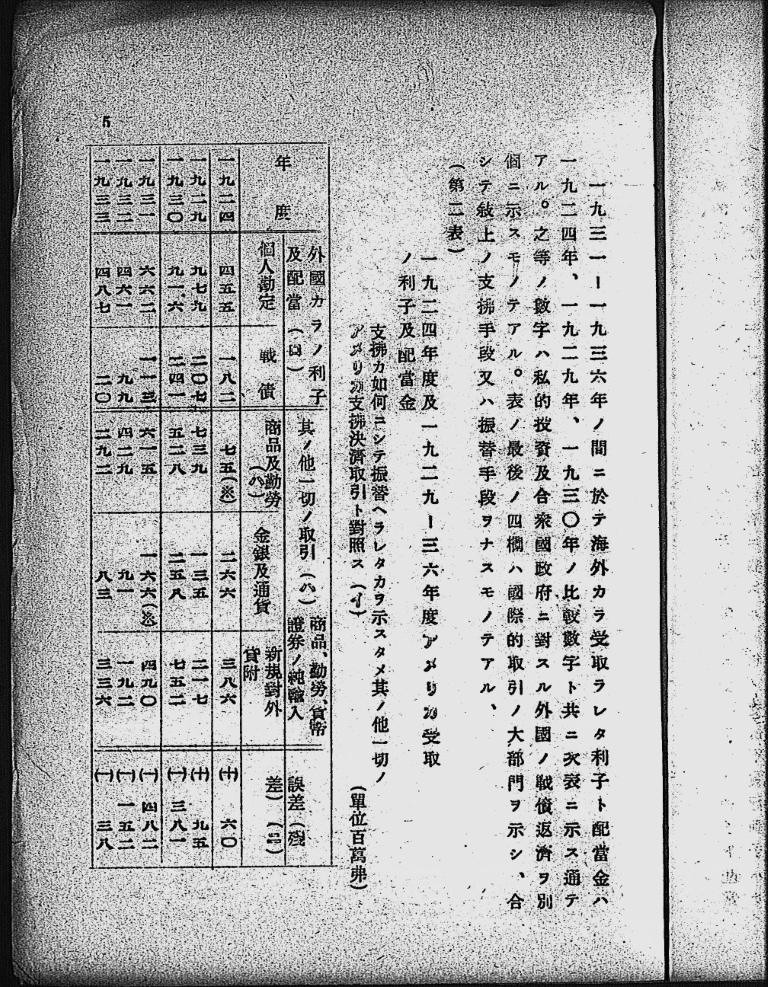 一九三一ー一九三六年ノ間ニ於テ海外カラ受取ラレタ利子ト配當金ハ
一九二四年、一九二九年、一九三〇年ノ比較數字ト共ニ次表ニ示ス通テ
アル。之等ノ數字ハ私的投資及合衆國政府ニ對スル外國ノ戰債返濟ヲ別
個ニ示スモノテアル。表ノ最後ノ四欄ハ國際的取引ノ大部門ヲ示シ、合
シテ敍上ノ支拂手段又ハ振替手段ヲナスモノテアル、
(第二表)
一九二四年度及一九二九ー三六年度アメリカ受取
ノ利子及配當金
支拂カ如何ニシテ振替ヘラレタカヲ示スタメ其ノ他一切ノ
アメリカ支拂決濟取引ト對照ス (イ)
(單位百萬弗)
年度
外國カラノ利子
及配當 (ロ)
個人勘定
戰債
其ノ他一切ノ取引 (ハ)
商品及勤勞
(ハ)
金銀及通貨
商品、勤勞、貨幣
證券ノ純輸入
新規對外
貸附
誤差 (殘
差) (ニ)
一九二四 四五五 一八二 七五(※) 二六六 三八六 (十) 六〇
一九二九 九七九 二〇七 七三九 一三五 二一七 (十) 九五
一九三〇 九一六 二四一 五二八 二五八 七五二 (一) 三八一
一九三一 六六二 一一三 六一五 一六六(※) 四九〇 (一) 四八二
一九三二 四六一 九九 四二九 九一 一九二 (一) 一五二
一九三三 四八七 二〇 二九二 八三 三三六 (一) 三八
5